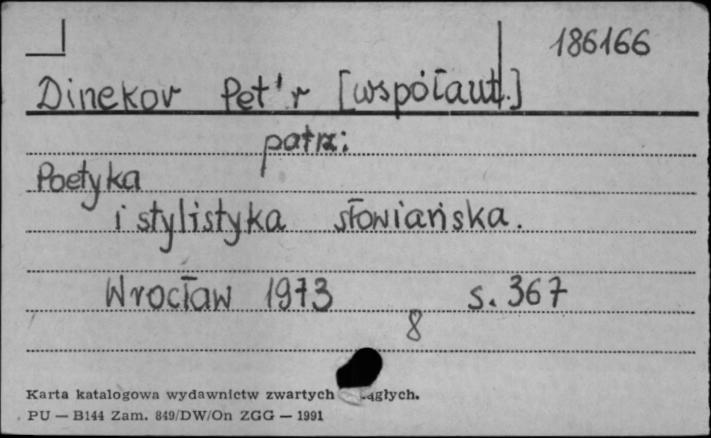 186166
Dinekov Pet'r [współaut.]
patrz:
Poetyka
i stylistyka słowiańska.
Wrocław 1973 s. 367
8
Karta katalogowa wydawnictw zwartych
PU — B144 Zam. 849/DW/On ZGG — 1991